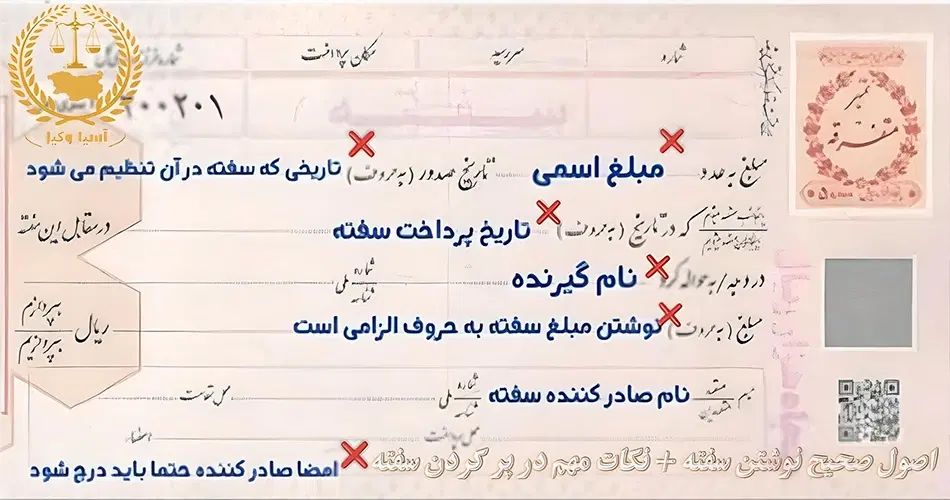 شماره سررسید مکان پرداخت
۲۰۰۲۰۱ سری
آسیا وکیل
سفته
سفته
متفرقه
مبلغ به عدد مبلغ اسمی تاریخ صدور (به حروف) تاریخی که سفته در آن تنظیم می شود
که در تاریخ (به حروف) تاریخ پرداخت سفته در مقابل این سفته
در وجه / به حواله کرد نام گیرنده شماره شناسه ملی
مبلغ (به حروف) نوشتن مبلغ سفته به حروف الزامی است ریال بپردازم بپردازیم
متعهد متعهدین نام صادر کننده سفته شماره شناسه ملی محل اقامت
محل پرداخت امضاء
امضا صادر کننده حتما باید درج شود
اصول صحیح نوشتن سفته + نکات مهم در پر کردن سفته